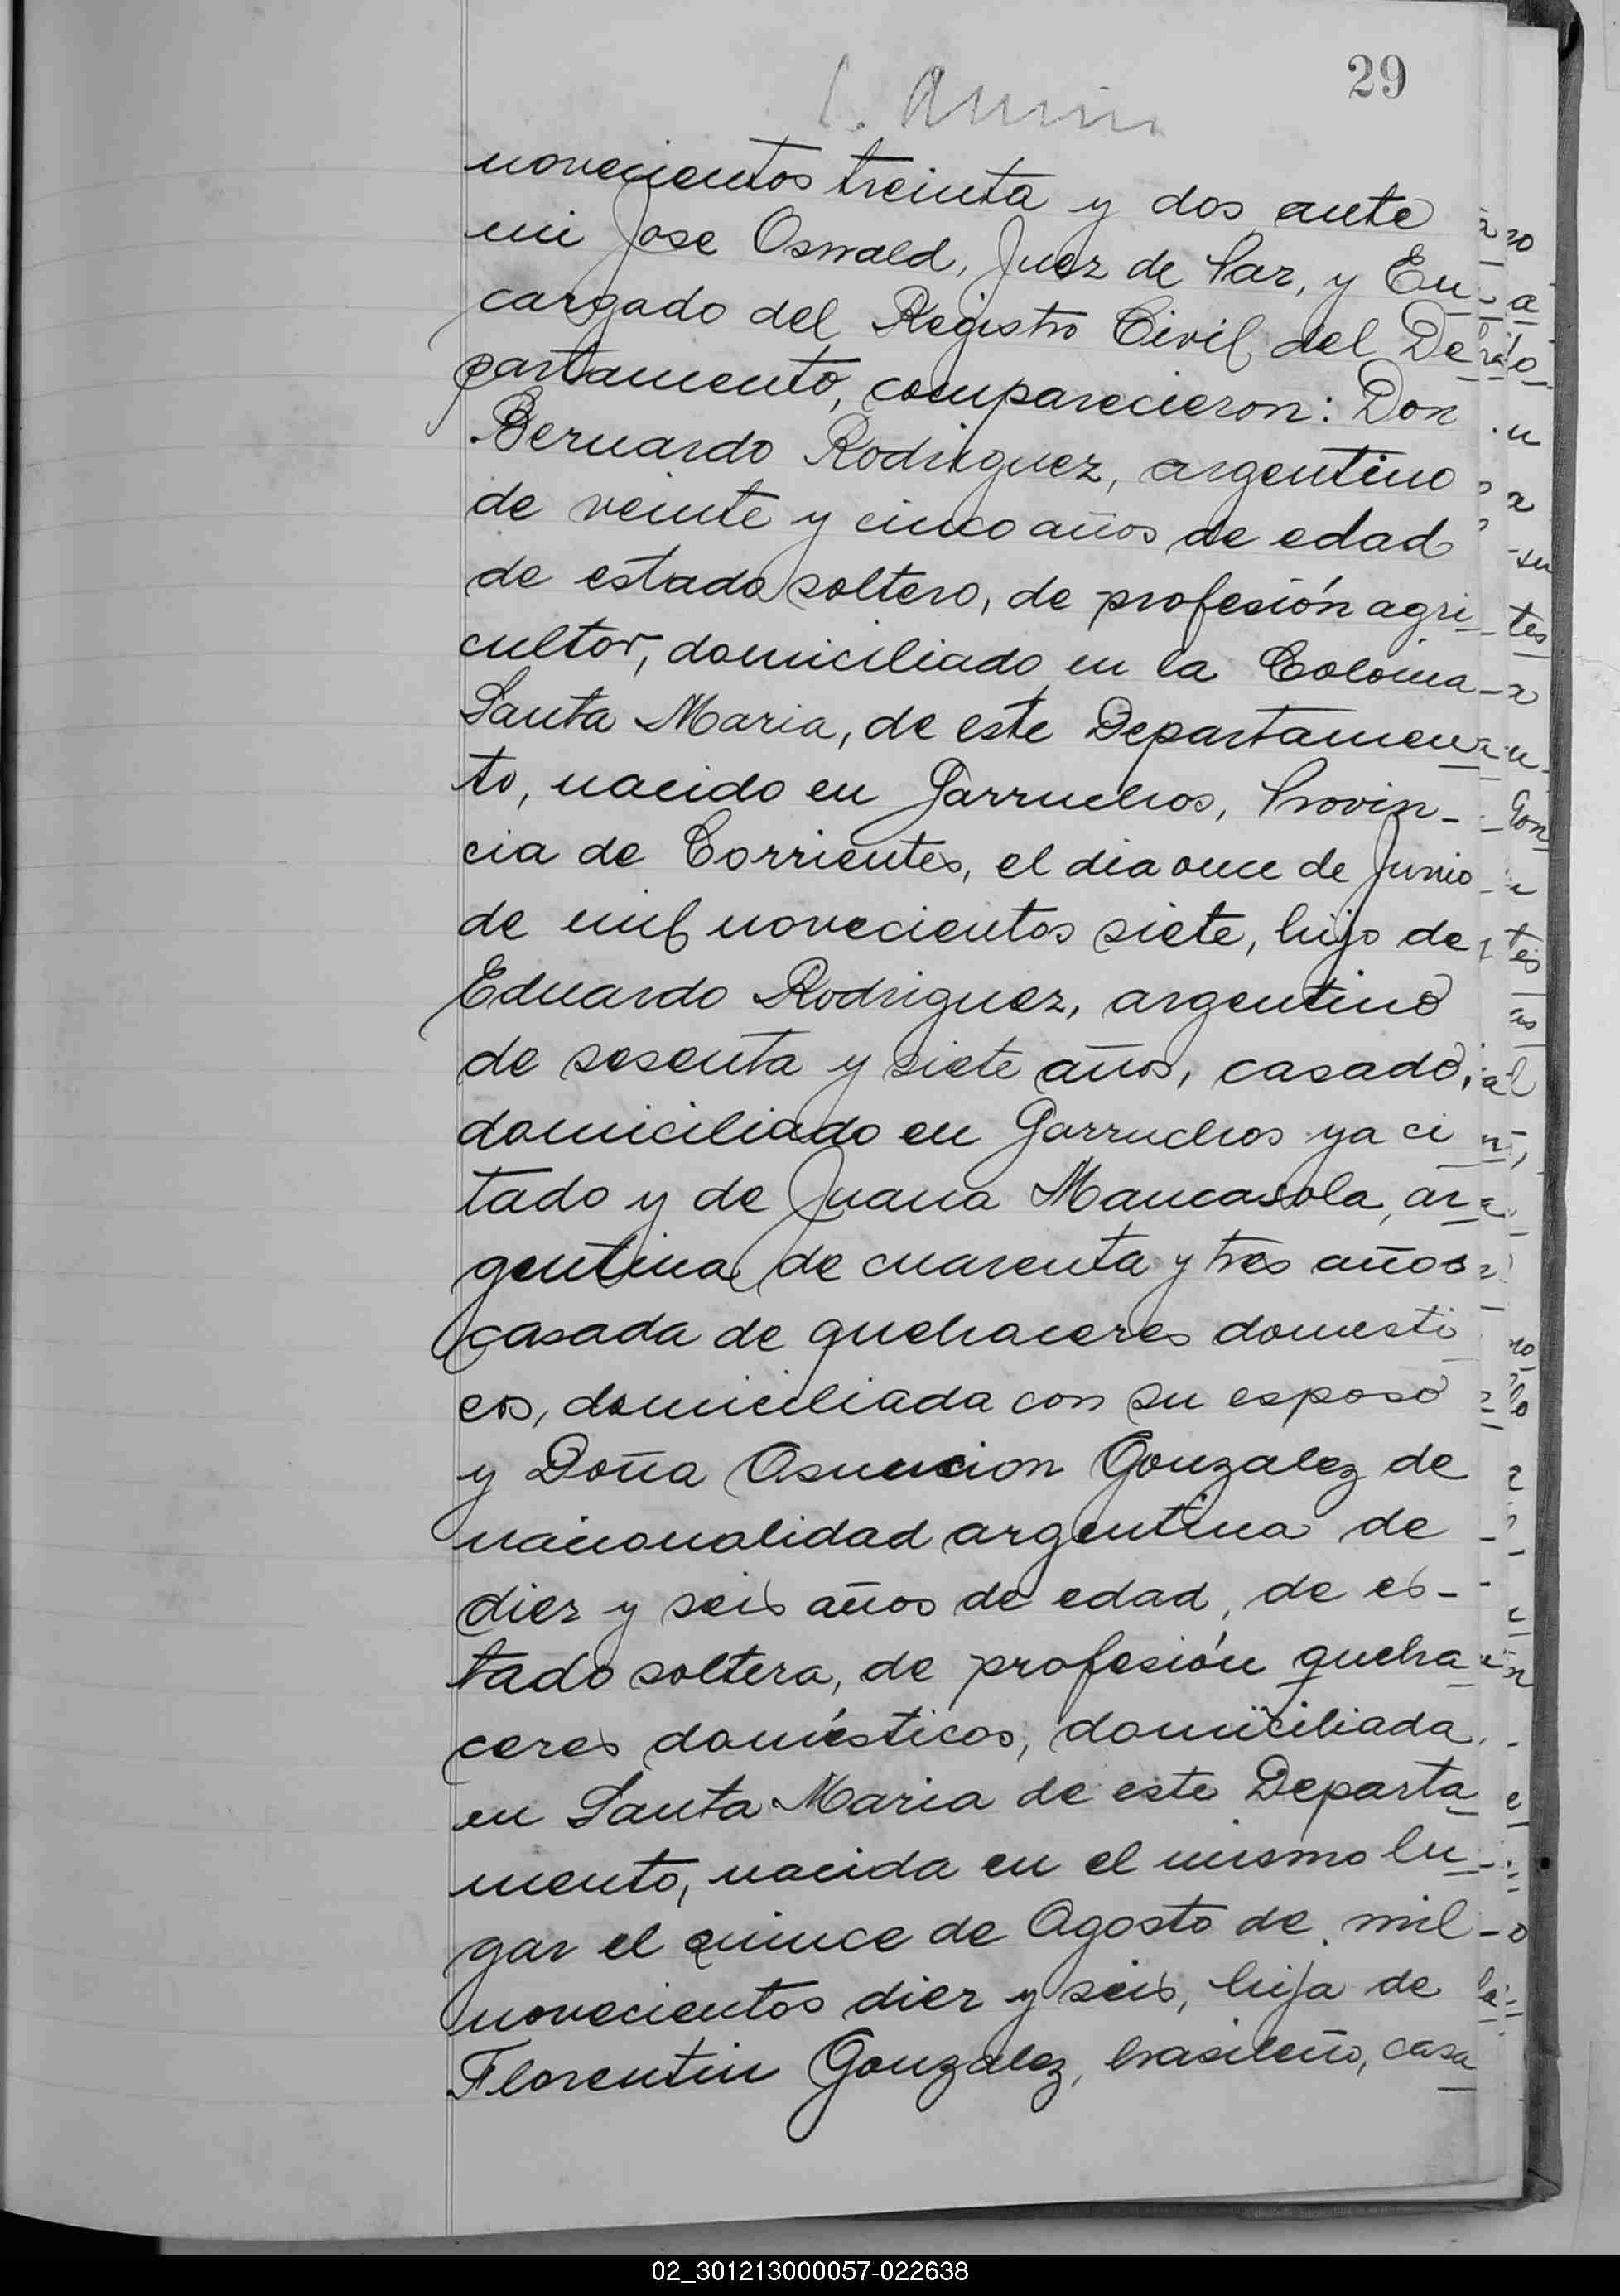 29
novecientos treinta y dos ante
mi Jose Oswald, Juez de Paz, y En-
cargado del Registro Civil del De
partamento, comparecieron: Don
Bernardo Rodriguez, argentino
de veinte y cinco años de edad
de estado soltero, de profesión agri-
cultor, domiciliado en la Colonia
Santa Maria, de este Departamen
to, nacido en Garruchos, Provin-
cia de Corrientes, el dia once de Junio
de mil novecientos siete, hijo de
Eduardo Rodriguez, argentino
de sesenta y siete años, casado,
domiciliado en Garruchos ya ci
tado y de Juana Mancasola, ar
gentina de cuarenta y tres años
casada de quehaceres domesti
cos, domiciliada con su esposo
y Doña Asuncion Gonzalez de
nacionalidad argentina de
diez y seis años de edad, de es-
tado soltera, de profesión queha
ceres domésticos, domiciliada
en Santa Maria de este Departa
mento, nacida en el mismo lu
gar el quince de Agosto de mil
novecientos diez y seis, hija de
Florentin Gonzalez, brasileño, casa
02_301213000057-022638